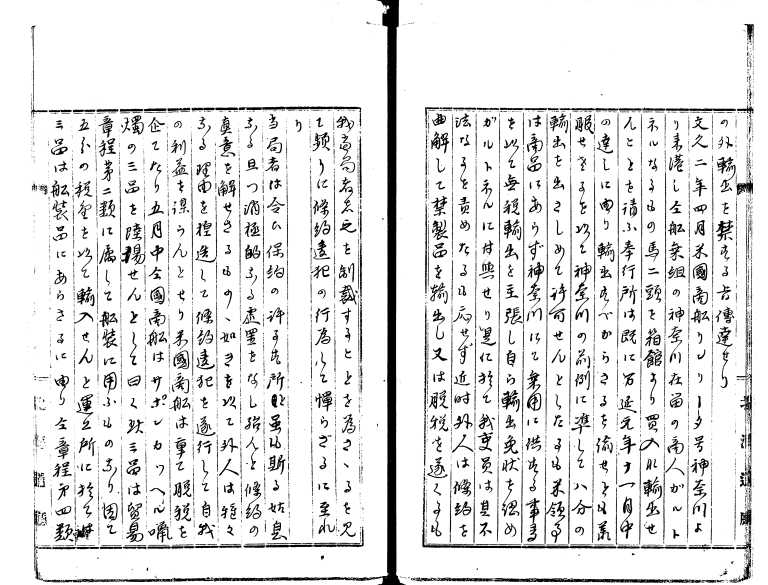 の外輸出を禁ずる旨傳達せり
文久二年四月米國商船リレリーター号神奈川よ
り来港し仝船乗組の神奈川在留の商人ガルト
ネルなるもの馬二頭を箱館より買入れ輸出せ
んことを請ふ奉行所は既に万延元年十一月中
の達しに由り輸出すべからざるを諭せとも承
服せざるを以て神奈川の前例に準して八分の
輸出を出さしめて許可せんとしたるも米領事
は商品にあらず神奈川にて乗用に供する事
を以て無税輸出を主張し自ら輸出免状を認め
ガルトネルに付與せり是に於て我吏員は其不
法なるを責めたるも応せず近時外人は條約を
曲解して禁製品を輸出し又は脱税を遂くるも
我當局者之を制裁することを為さゝるを見
て頻りに條約違犯の行為して憚らざるに至れ
り
当局者は令ひ條約の許す所と雖も斯る姑息
なる且つ消極的なる處置をなし殆んと條約の
真意を解せさるものゝ如きを以て外人は種々
なる理由を捏造して條約違犯を遂行して自我
の利益を謀らんとせり米國商船は東て脱税を
企てたり五月中仝國商船はサポンカッヘル嘣
燭の三品を陸揚せんとして曰く此三品は貿易
章程第二類に属して船装に用ふものなり因て
五分の税金を以て輸入せんと運上所に於ては
三品は船装品にあらさるに由り仝章程第四類